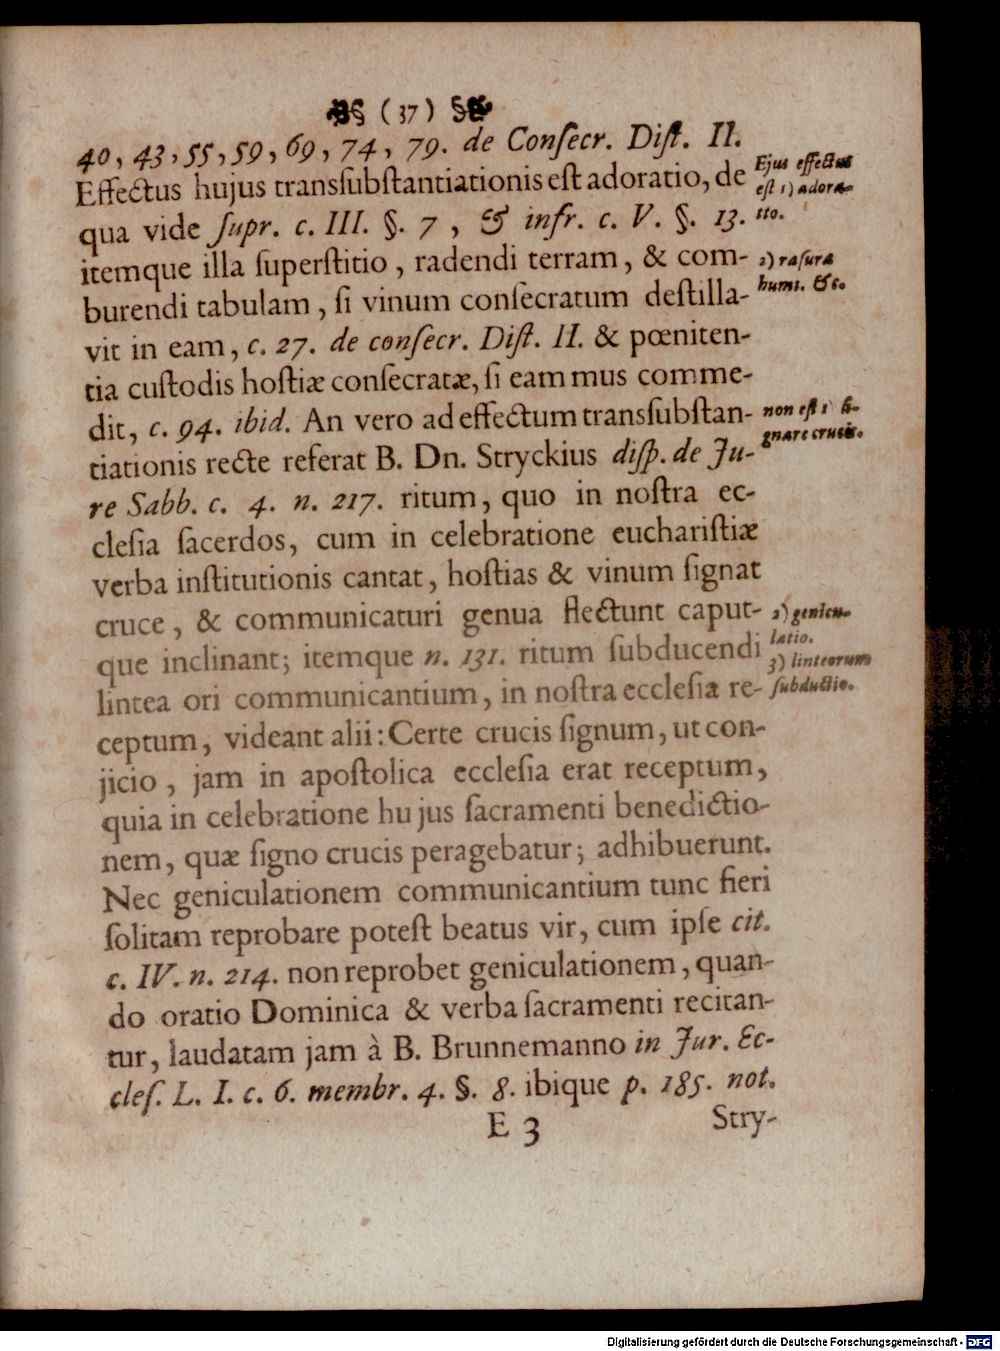 § ( 37 ) §
40, 43, 55, 59, 69, 74, 79. de Conſecr. Diſt. II.
Effectus hujus transſubſtantiationis eſt adoratio, de
Ejus effectus
eſt 1) adora-
tio.
qua vide ſupr. c. III. §. 7, & infr. c. V. §. 13.
itemque illa ſuperſtitio, radendi terram, & com-
2) raſura
humi. &c.
burendi tabulam, ſi vinum conſecratum deſtilla-
vit in eam, c. 27. de conſecr. Diſt. II. & pœniten-
tia cuſtodis hoſtiæ conſecratæ, ſi eam mus comme-
dit, c. 94. ibid. An vero ad effectum transſubſtan-
non eſt 1 ſi-
gnare crucis.
tiationis recte referat B. Dn. Stryckius diſp. de Ju-
re Sabb. c. 4. n. 217. ritum, quo in noſtra ec-
cleſia ſacerdos, cum in celebratione euchariſtiæ
verba inſtitutionis cantat, hoſtias & vinum ſignat
cruce, & communicaturi genua flectunt caput-
2) genicu-
latio.
que inclinant; itemque n. 131. ritum ſubducendi
3) linteorum
ſubductio.
lintea ori communicantium, in noſtra eccleſia re-
ceptum, videant alii: Certe crucis ſignum, ut con-
jicio, jam in apoſtolica eccleſia erat receptum,
quia in celebratione hujus ſacramenti benedictio-
nem, quæ ſigno crucis peragebatur; adhibuerunt.
Nec geniculationem communicantium tunc fieri
ſolitam reprobare poteſt beatus vir, cum ipſe cit.
c. IV. n. 214. non reprobet geniculationem, quan-
do oratio Dominica & verba ſacramenti recitan-
tur, laudatam jam à B. Brunnemanno in Jur. Ec-
cleſ. L. I. c. 6. membr. 4. §. 8. ibique p. 185. not.
E 3
Stry-
Digitalisierung gefördert durch die Deutsche Forschungsgemeinschaft - DFG